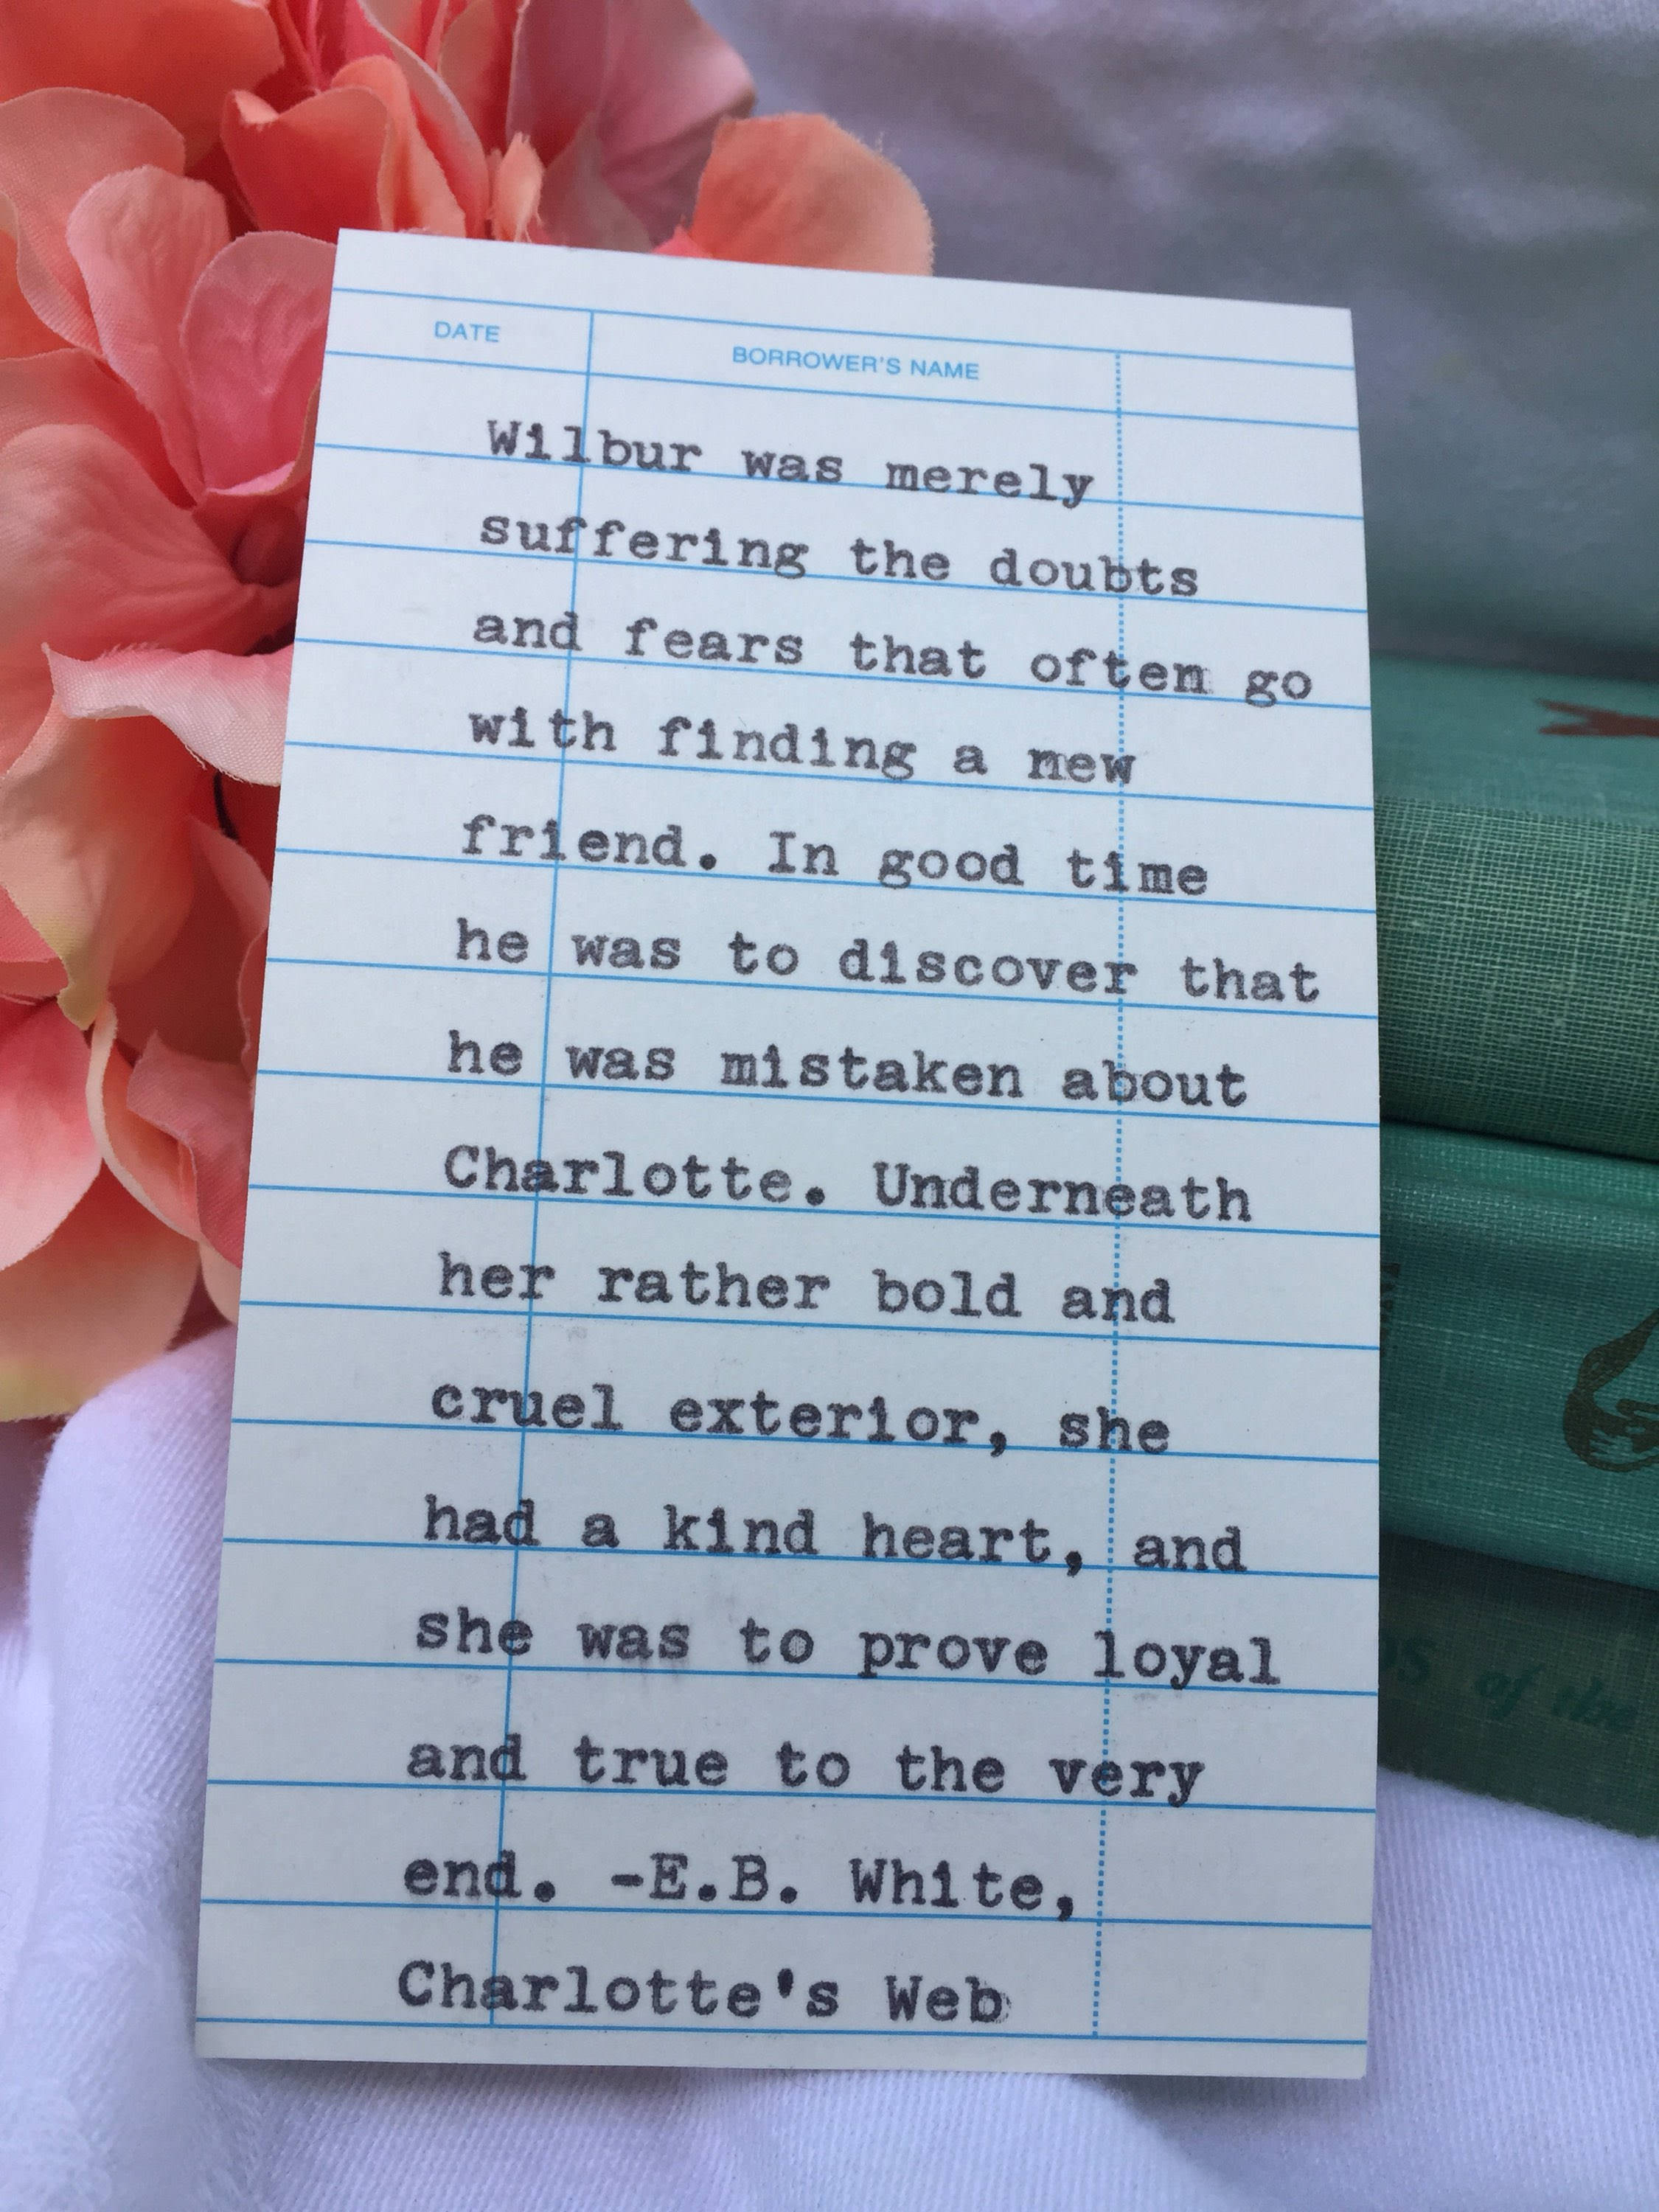 DATE BORROWER'S NAME
Wilbur was merely
suffering the doubts
and fears that often go
with finding a new
friend. In good time
he was to discover that
he was mistaken about
Charlotte. Underneath
her rather bold and
cruel exterior, she
had a kind heart, and
she was to prove loyal
and true to the very
end. -E.B. White,
Charlotte's Web
of the